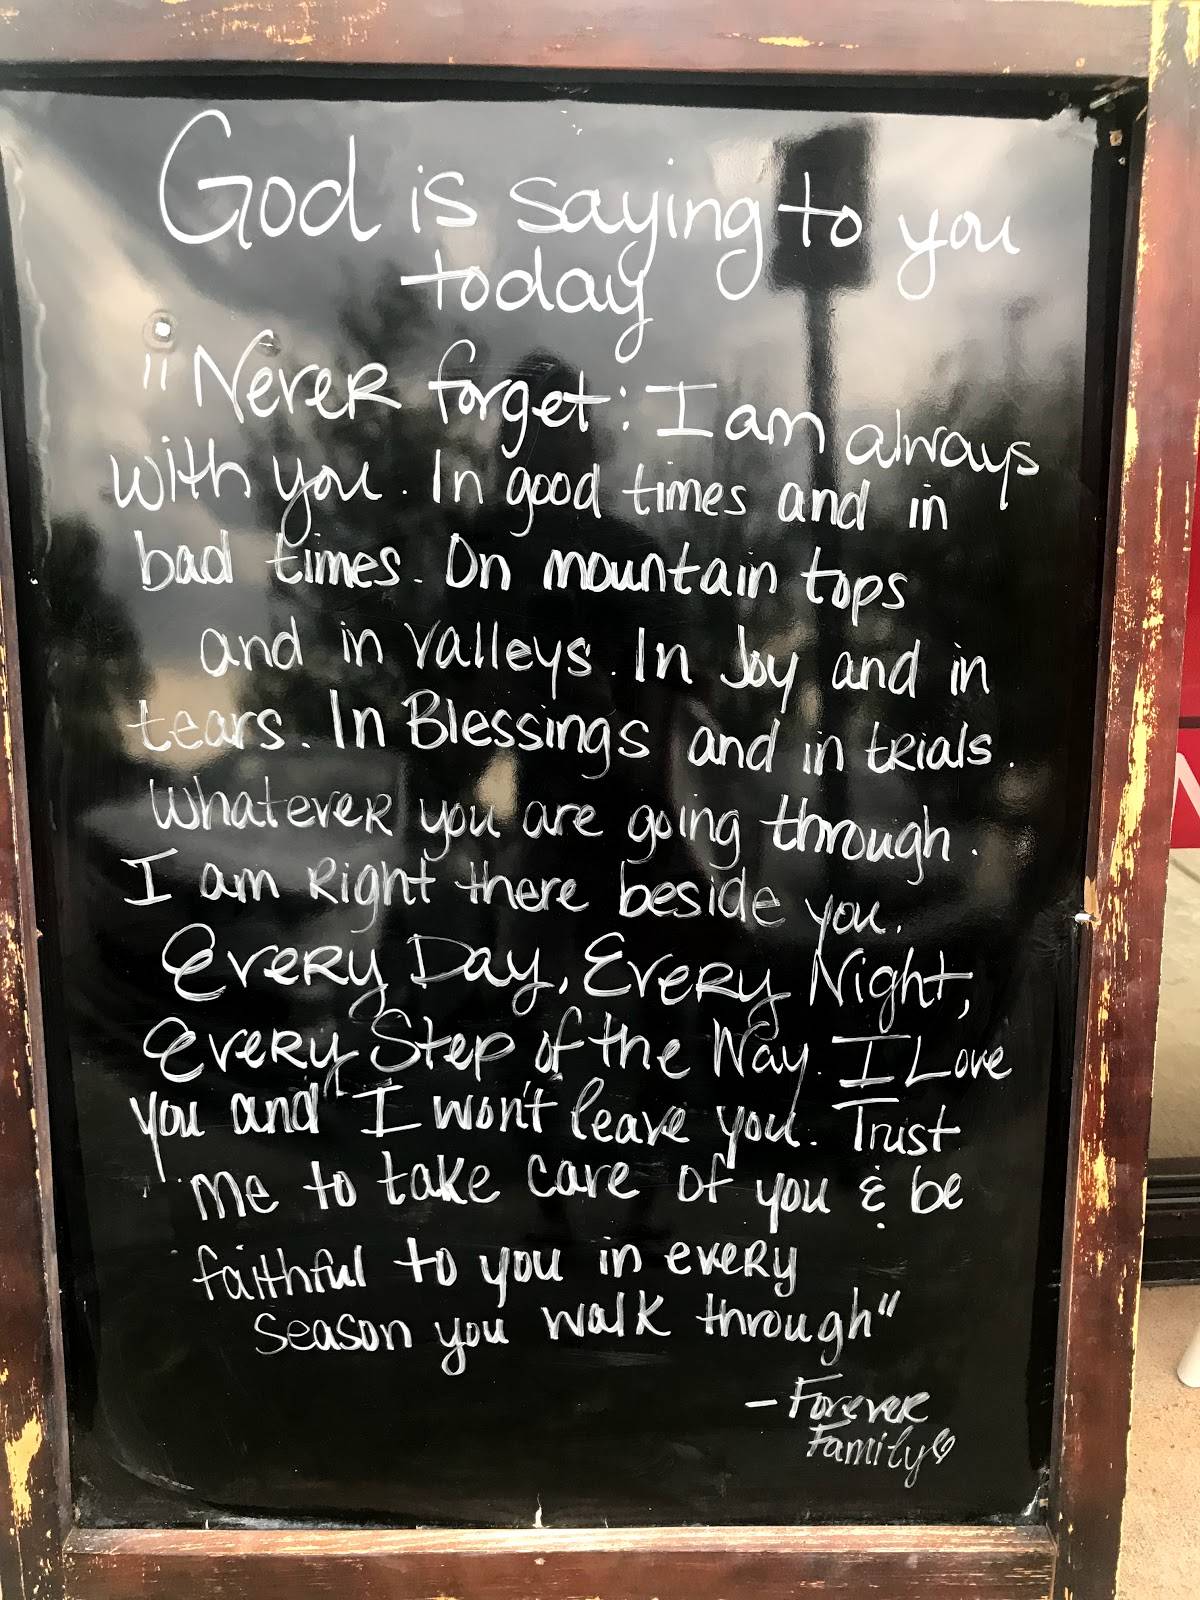 God is saying to you
today
"Never forget: I am always
with you. In good times and in
bad times. On mountain tops
and in valleys. In Joy and in
tears. In Blessings and in trials.
Whatever you are going through.
I am Right there beside you.
Every Day, Every Night,
Every Step of the Way. I Love
you and I won't leave you. Trust
me to take care of you & be
faithful to you in every
season you walk through"
- Forever
Family